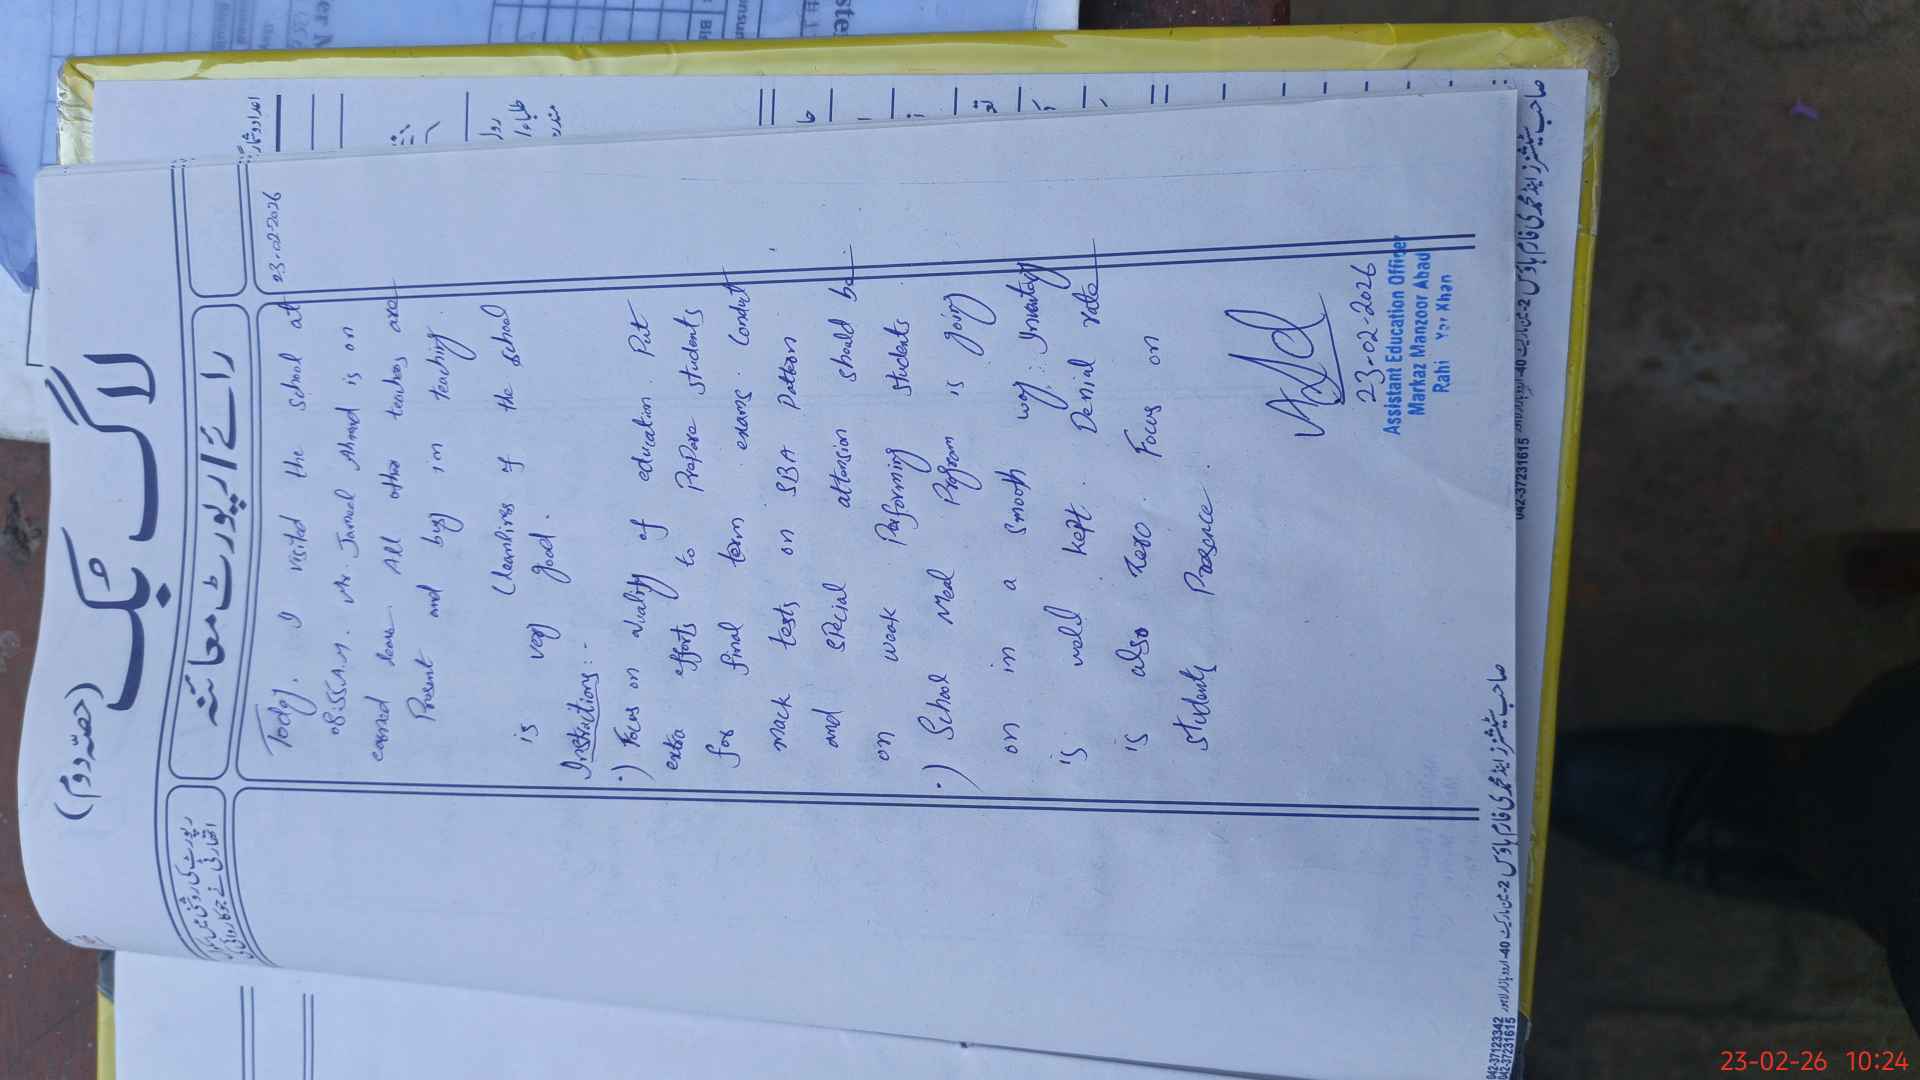 لاگ بک
(حصہ دوم)
رائے / رپورٹ معائنہ
23-02-2026
Today. I visited the school at
08:55A.M. Mr. Jameel Ahmad is on
earned leave. All other teachers are
Present and busy in teaching.
Cleanliness of the school
is very good.
Instructions:-
.) Focus on Quality of education. Put
extra efforts to Prepare students
for final term exams. Conduct
mack tests on SBA Pattern
and special attension should be
on weak Performing students
.) School Meal Program is going
on in a smooth way. Inventory
is well kept. Denial rate
is also zero. Focus on
students Presence.
23-02-2026
Assistant Education Officer
Markaz Manzoor Abad
Rahi Yar Khan
042-37231615
042-37123342
042-37231615
23-02-26 10:24